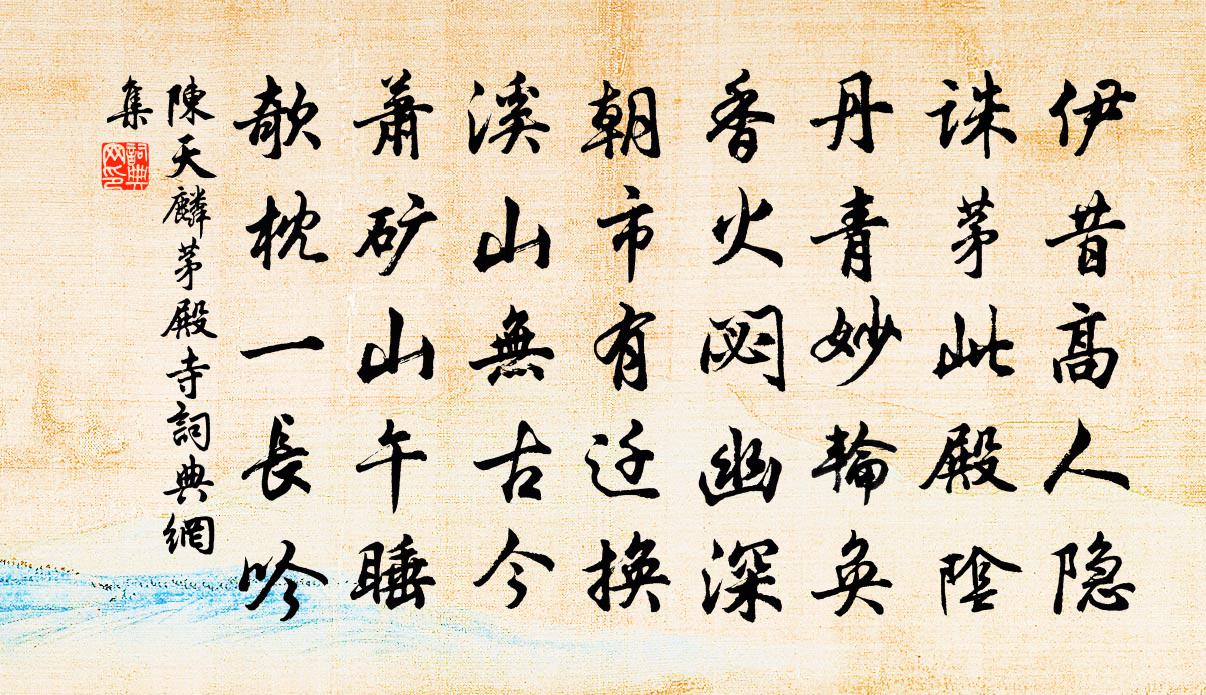 伊昔高人隐
诛茅此殿陰
丹青妙輪奂
香火閟幽深
朝市有迁換
溪山無古今
萧矿山午睡
欹枕一長吟
陳天麟茅殿寺詞典網
集
詞典網印